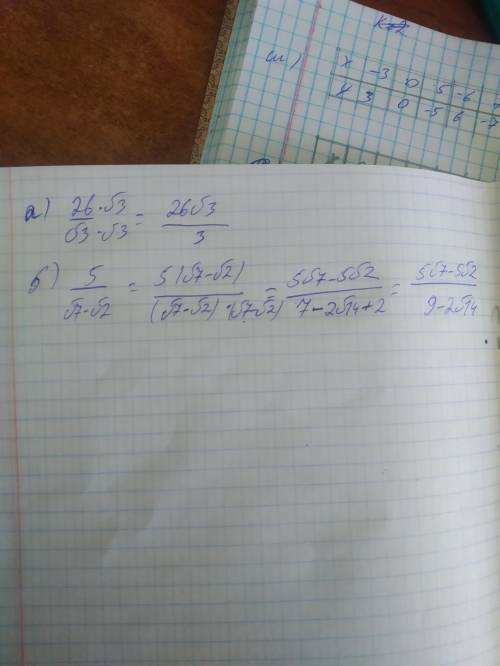 к=2
ж)
x -3 0 5 -6
y 3 0 -5 6 -7
а) 26·√3/√3·√3 = 26√3/3
б) 5/√7-√2 = 5(√7-√2)/(√7-√2)·(√7-√2) = 5√7-5√2/7-2√14+2 = 5√7-5√2/9-2√14